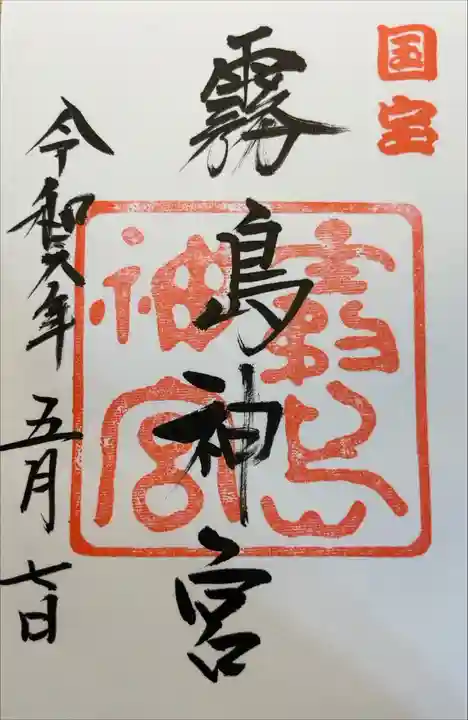 国宝
霧島神宮
霧島神宮
令和六年 五月 七日